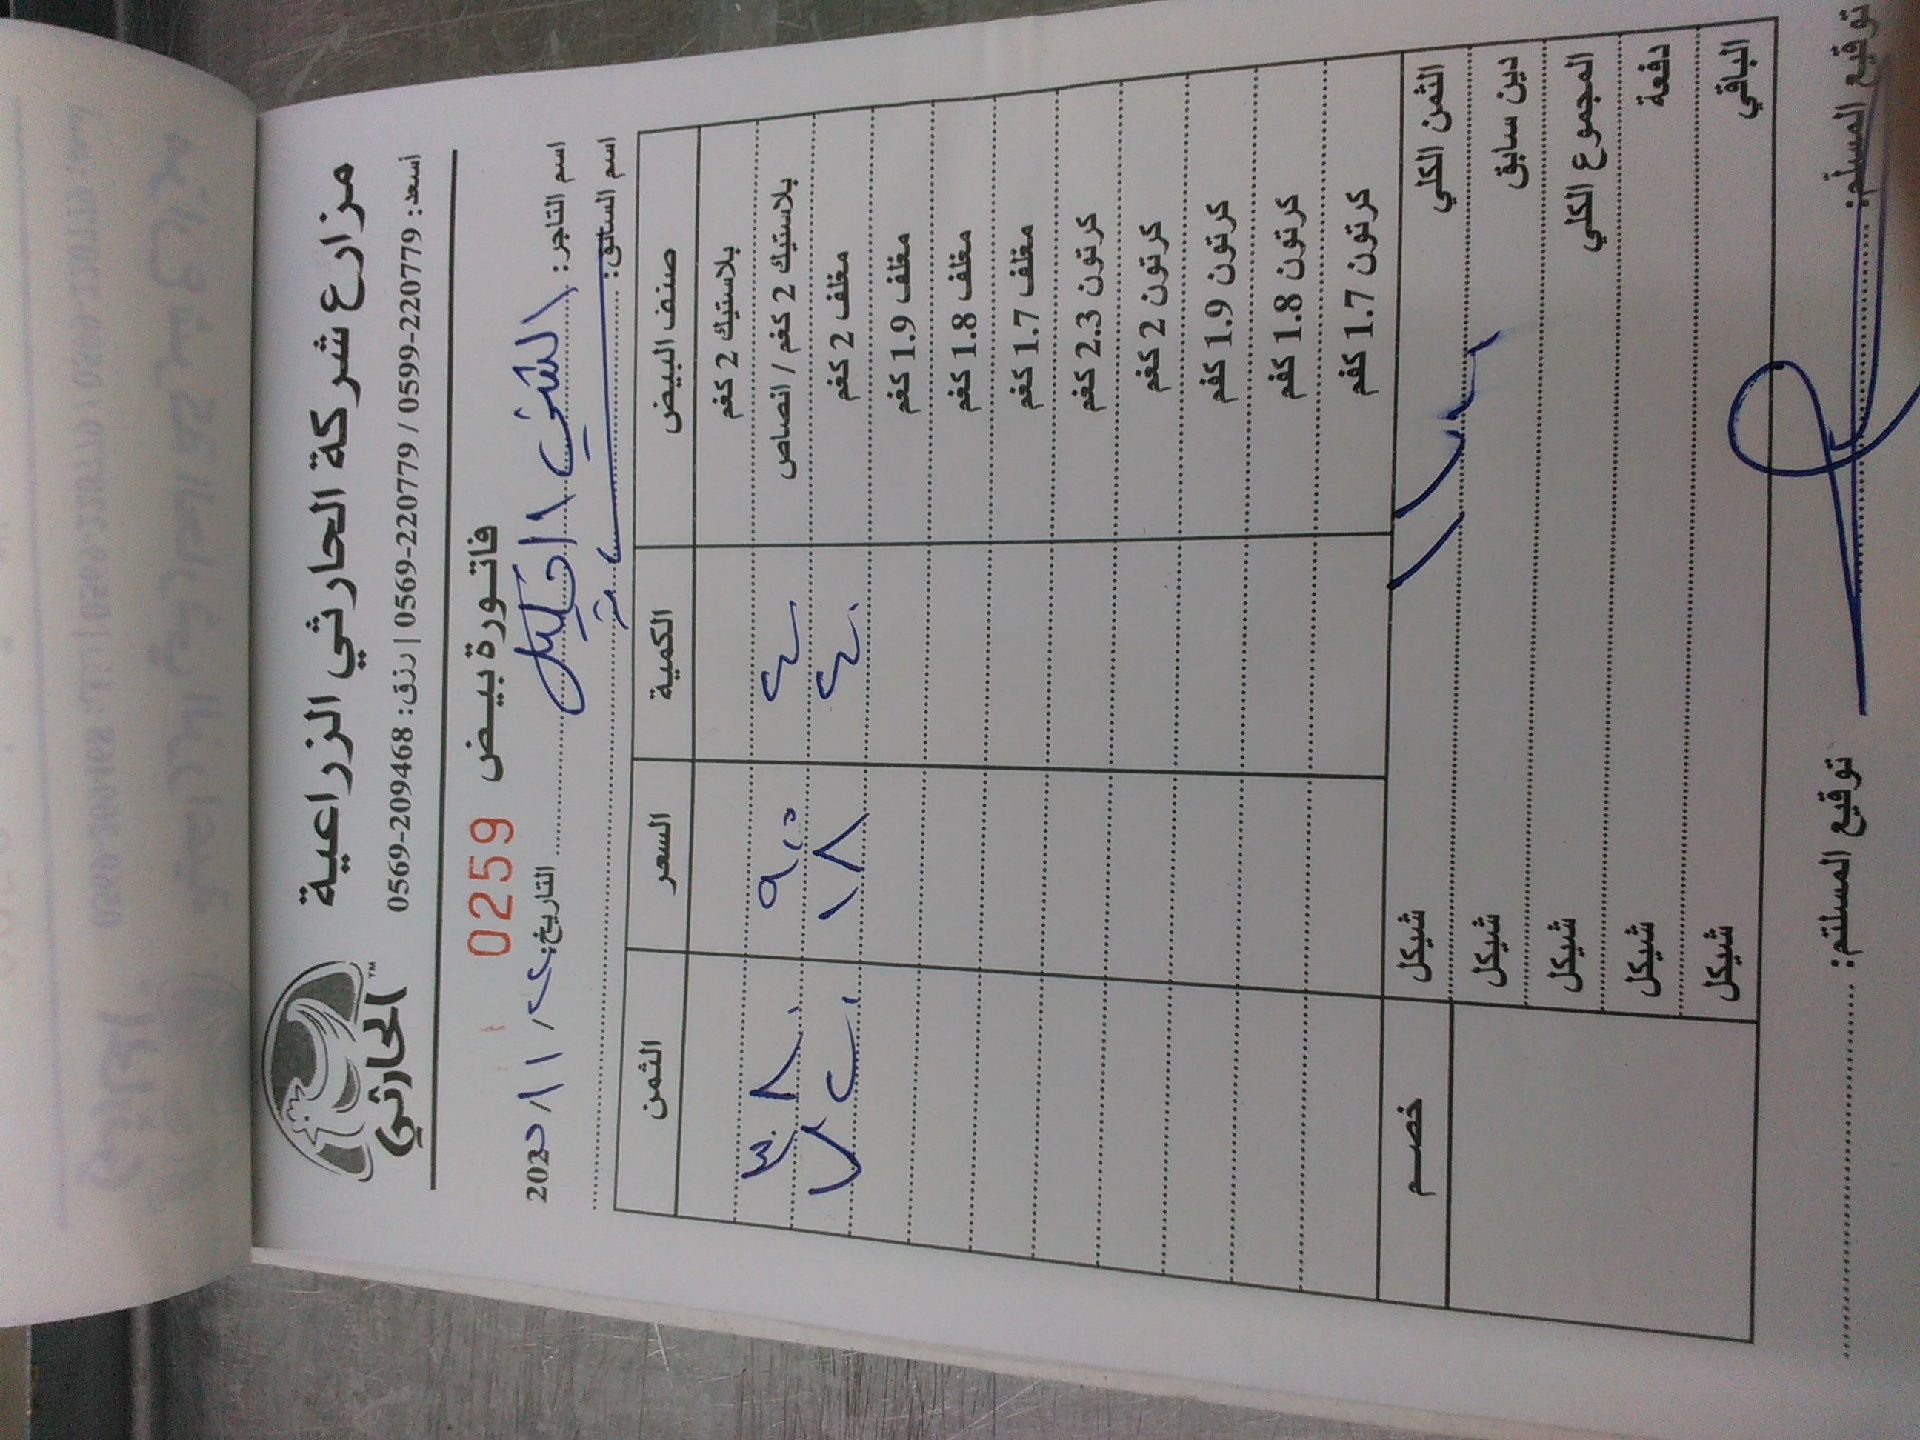 مزارع شركة الحارثي الزراعية
أسعد: 0599-220779 / 0569-220779 | رزق: 0569-209468
الحارثي™
فاتورة بيض 0259
اسم التاجر: التاريخ: ٢٤ / ١١ / 2022
اسم السائق:
صنف البيض الكمية السعر الثمن
بلاستيك 2 كغم
بلاستيك 2 كغم / انصاص ٤٠ ٩,٥ ٣٨٠
مغلف 2 كغم ٤٠ ١٨ ٧٢٠
مغلف 1.9 كغم
مغلف 1.8 كغم
مغلف 1.7 كغم
كرتون 2.3 كغم
كرتون 2 كغم
كرتون 1.9 كغم
كرتون 1.8 كغم
كرتون 1.7 كغم
الثمن الكلي ١١٠٠ شيكل خصم
دين سابق شيكل
المجموع الكلي شيكل
دفعة شيكل
الباقي شيكل
توقيع المسلم: توقيع المستلم: